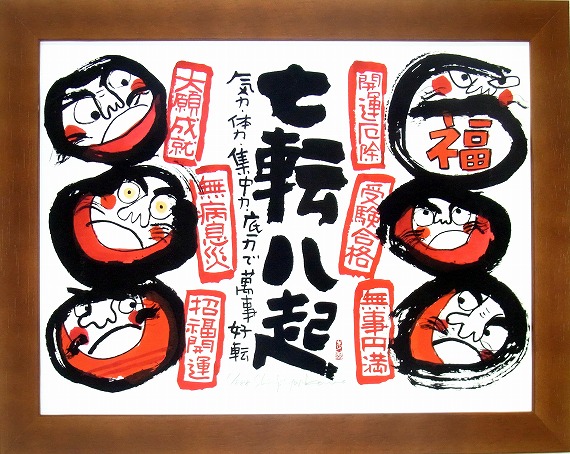 七転八起
気力・体力・集中力・底力で萬事好転
開運厄除
受験合格
無事円満
大願成就
無病息災
招福開運
福